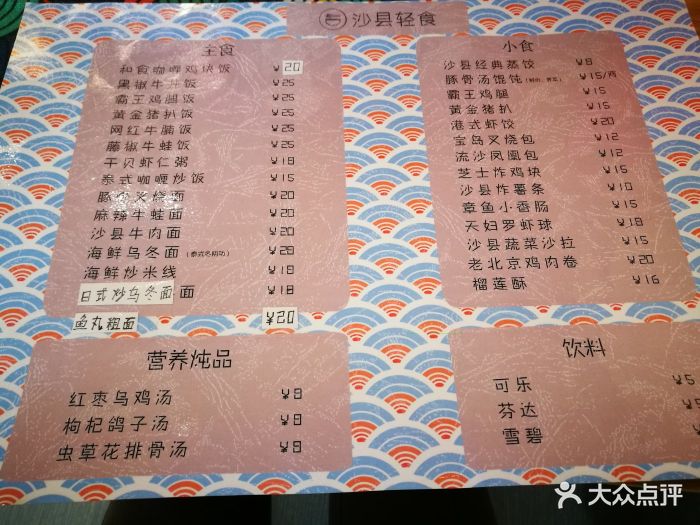 沙县轻食
主食
和食咖喱鸡块饭 ¥20
黑椒牛井饭 ¥25
霸王鸡腿饭 ¥25
黄金猪扒饭 ¥25
网红牛腩饭 ¥25
藤椒牛蛙饭 ¥25
干贝虾仁粥 ¥18
泰式咖喱炒饭 ¥18
豚骨叉烧面 ¥20
麻辣牛蛙面 ¥20
沙县牛肉面 ¥20
海鲜乌冬面(泰式冬阴功) ¥28
海鲜炒米线 ¥18
日式炒乌冬面面 ¥18
鱼丸粗面 ¥20
小食
沙县经典蒸饺 ¥8
豚骨汤馄饨 ¥15/两
霸王鸡腿 ¥15
黄金猪扒 ¥15
港式虾饺 ¥20
宝岛叉烧包 ¥12
流沙凤凰包 ¥12
芝士炸鸡块 ¥15
沙县炸薯条 ¥10
章鱼小香肠 ¥15
天妇罗虾球 ¥18
沙县蔬菜沙拉 ¥15
老北京鸡肉卷 ¥20
榴莲酥 ¥16
营养炖品
红枣乌鸡汤 ¥8
枸杞鸽子汤 ¥8
虫草花排骨汤 ¥8
饮料
可乐 ¥5
芬达 ¥5
雪碧 ¥
大众点评